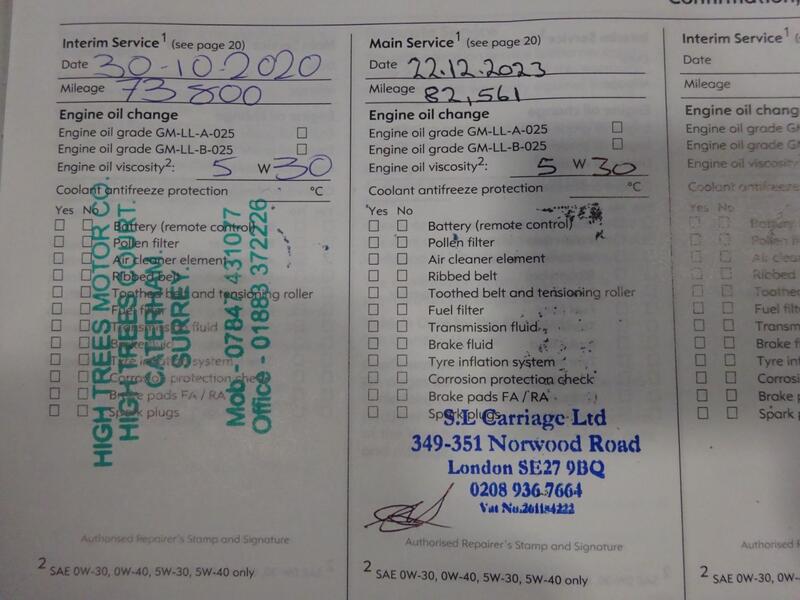 Interim Service1 (see page 20)
Date 30-10-2020
Mileage 73800
Engine oil change
Engine oil grade GM-LL-A-025
Engine oil grade GM-LL-B-025
Engine oil viscosity2: 5 W 30
Coolant antifreeze protection °C
Yes No
Battery (remote control)
Pollen filter
Air cleaner element
Ribbed belt
Toothed belt and tensioning roller
Fuel filter
Transmission fluid
Brake fluid
Tyre inflation system
Corrosion protection check
Brake pads FA / RA
Spark plugs
HIGH TREES MOTOR CO.
HIGH TREES COURT.
CATERHAM
SURREY.
Mob - 07847 431077
Office - 01883 372226
Authorised Repairer's Stamp and Signature
2 SAE 0W-30, 0W-40, 5W-30, 5W-40 only
Main Service1 (see page 20)
Date 22.12.2023
Mileage 82,561
Engine oil change
Engine oil grade GM-LL-A-025
Engine oil grade GM-LL-B-025
Engine oil viscosity2: 5 W 30
Coolant antifreeze protection °C
Yes No
Battery (remote control)
Pollen filter
Air cleaner element
Ribbed belt
Toothed belt and tensioning roller
Fuel filter
Transmission fluid
Brake fluid
Tyre inflation system
Corrosion protection check
Brake pads FA / RA
Spark plugs
S.L Carriage Ltd
349-351 Norwood Road
London SE27 9BQ
0208 936 7664
Vat No.261184222
Authorised Repairer's Stamp and Signature
2 SAE 0W-30, 0W-40, 5W-30, 5W-40 only
Interim Service1
Date
Mileage
Engine oil chang
Engine oil grade G
Engine oil grade G
Engine oil viscosity
Coolant antifreeze
Yes No
Battery
Pollen fi
Air clea
Ribbed
Toothe
Fuel filt
Transm
Brake f
Tyre in
Corrosi
Brake p
Spark p
Authorised
2 SAE 0W-30, 0